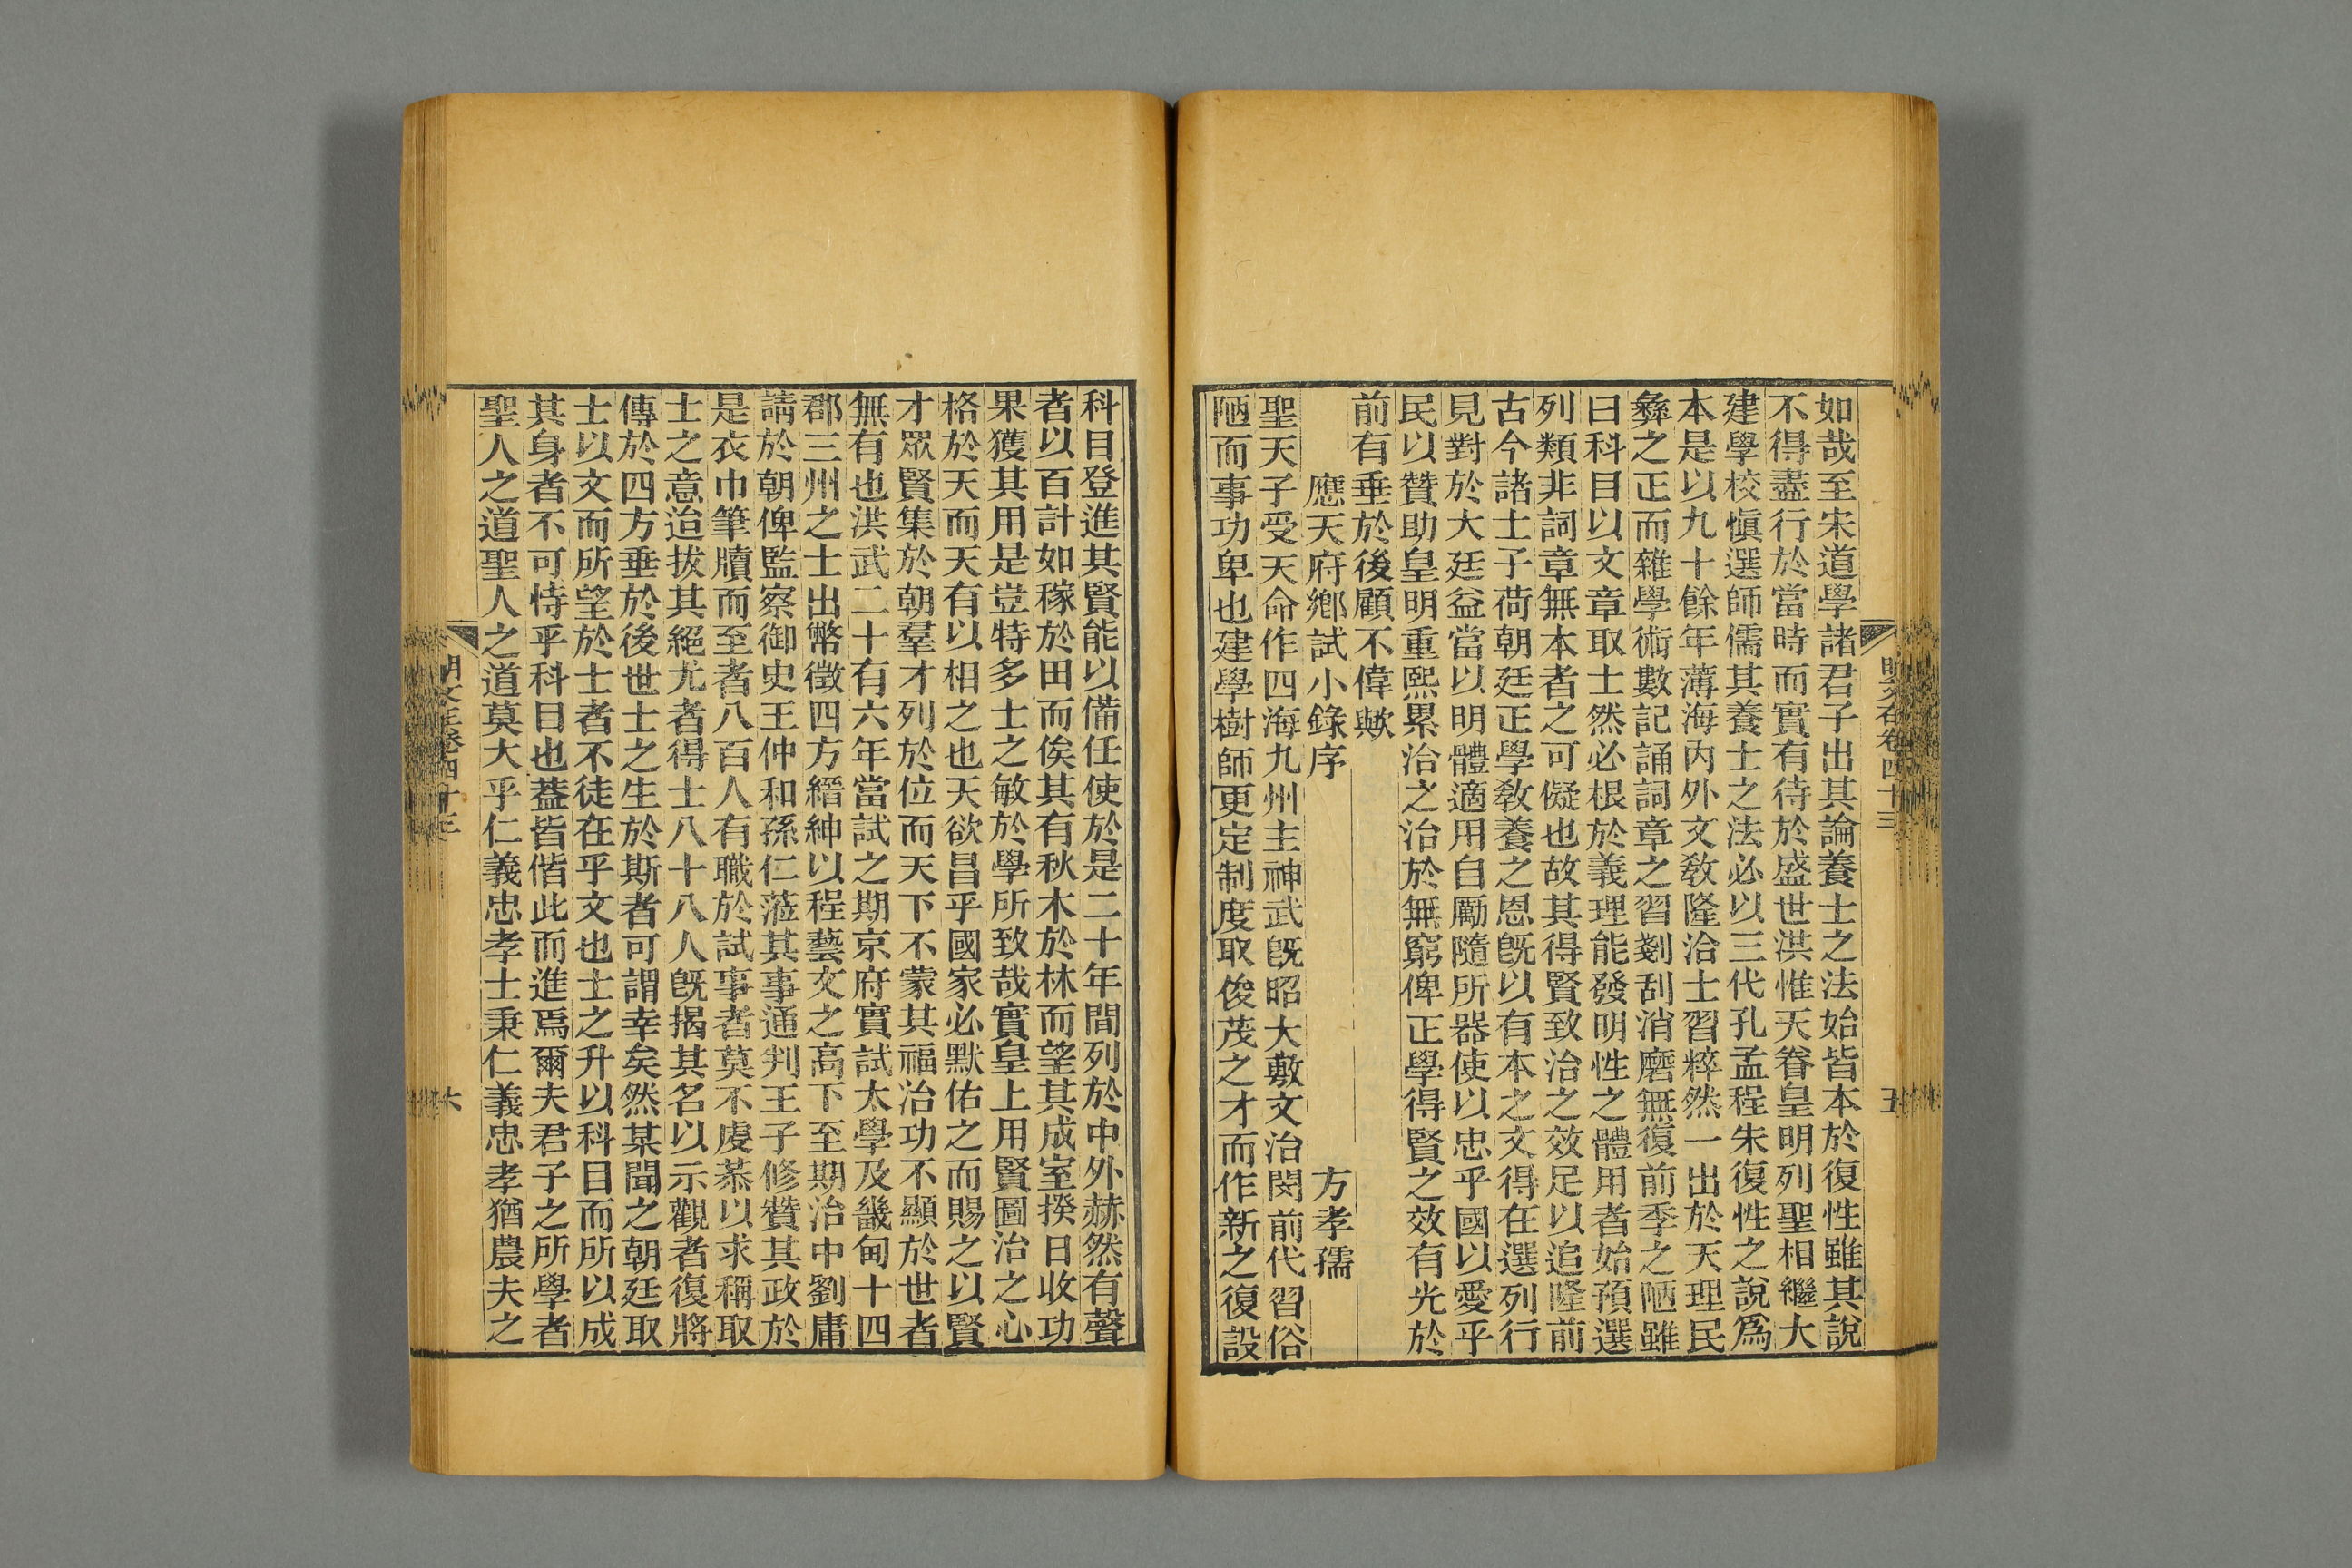 如哉至宋道學諸君子出其論養士之法始皆本於復性雖其說
不得盡行於當時而實有待於盛世洪惟天眷皇明列聖相繼大
建學校愼選師儒其養士之法必以三代孔孟程朱復性之說爲
本是以九十餘年薄海內外文敎隆洽士習粹然一出於天理民
彝之正而雜學術數記誦詞章之習剗刮消磨無復前季之陋雖
曰科目以文章取士然必根於義理能發明性之體用者始預選
列類非詞章無本者之可儗也故其得賢致治之效足以追隆前
古今諸士子荷朝廷正學敎養之恩旣以有本之文得在選列行
見對於大廷益當以明體適用自勵隨所器使以忠乎國以愛乎
民以贊助皇明重熙累洽之治於無窮俾正學得賢之效有光於
前有垂於後顧不偉歟
應天府鄕試小錄序 方孝孺
聖天子受天命作四海九州主神武旣昭大敷文治閔前代習俗
陋而事功卑也建學樹師更定制度取俊茂之才而作新之復設
明文在卷四十三 五
科目登進其賢能以備任使於是二十年間列於中外赫然有聲
者以百計如稼於田而俟其有秋木於林而望其成室揆日收功
果獲其用是豈特多士之敏於學所致哉實皇上用賢圖治之心
格於天而天有以相之也天欲昌乎國家必默佑之而賜之以賢
才眾賢集於朝羣才列於位而天下不蒙其福治功不顯於世者
無有也洪武二十有六年當試之期京府實試太學及畿甸十四
郡三州之士出幣徵四方縉紳以程藝文之高下至期治中劉庸
請於朝俾監察御史王仲和孫仁蒞其事通判王子修贊其政於
是衣巾筆牘而至者八百人有職於試事者莫不虔恭以求稱取
士之意迨拔其絕尤者得士八十八人旣揭其名以示觀者復將
傳於四方垂於後世士之生於斯者可謂幸矣然某聞之朝廷取
士以文而所望於士者不徒在乎文也士之升以科目而所以成
其身者不可恃乎科目也葢皆偕此而進焉爾夫君子之所學者
聖人之道聖人之道莫大乎仁義忠孝士秉仁義忠孝猶農夫之
明文在卷四十三 六